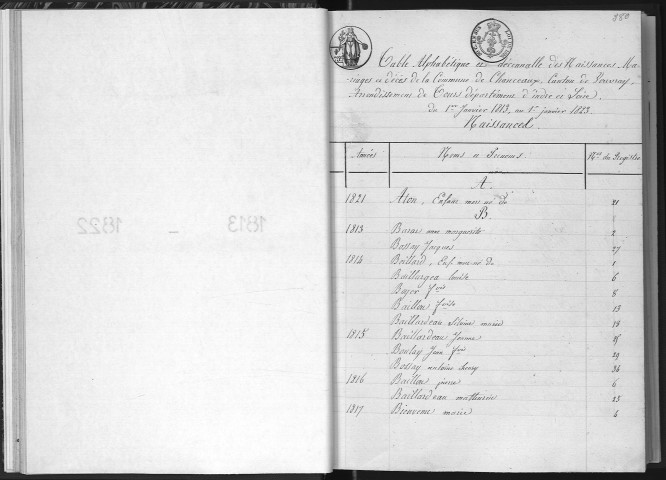 280
Table Alphabétique et décennalle des Naissances, Ma-
riages et décès de la Commune de Chanceaux, Canton de Vouvray,
Arrondissement de Tours département d'indre et Loire.
du 1er Janvier 1813, au 1er janvier 1823.
Naissances.
Années Noms et Prénoms. Nos du Registre
A.
1821 Aton, Enfant mort né de 21
B.
1813 marguerite 2
Bossay Jacques 27
1814 Baillard, Enf. mort né de 1
Baillargea louise 6
Boyer 8
Baillou 13
Baillardeau marie 18
1815 Baillardeau Jeanne
Boulay Jean 29
Bossay antoine 36
1816 Baillou pierre 6
Baillardeau mathurin 23
1817 Bienvenu marie 4
1813 – 1822